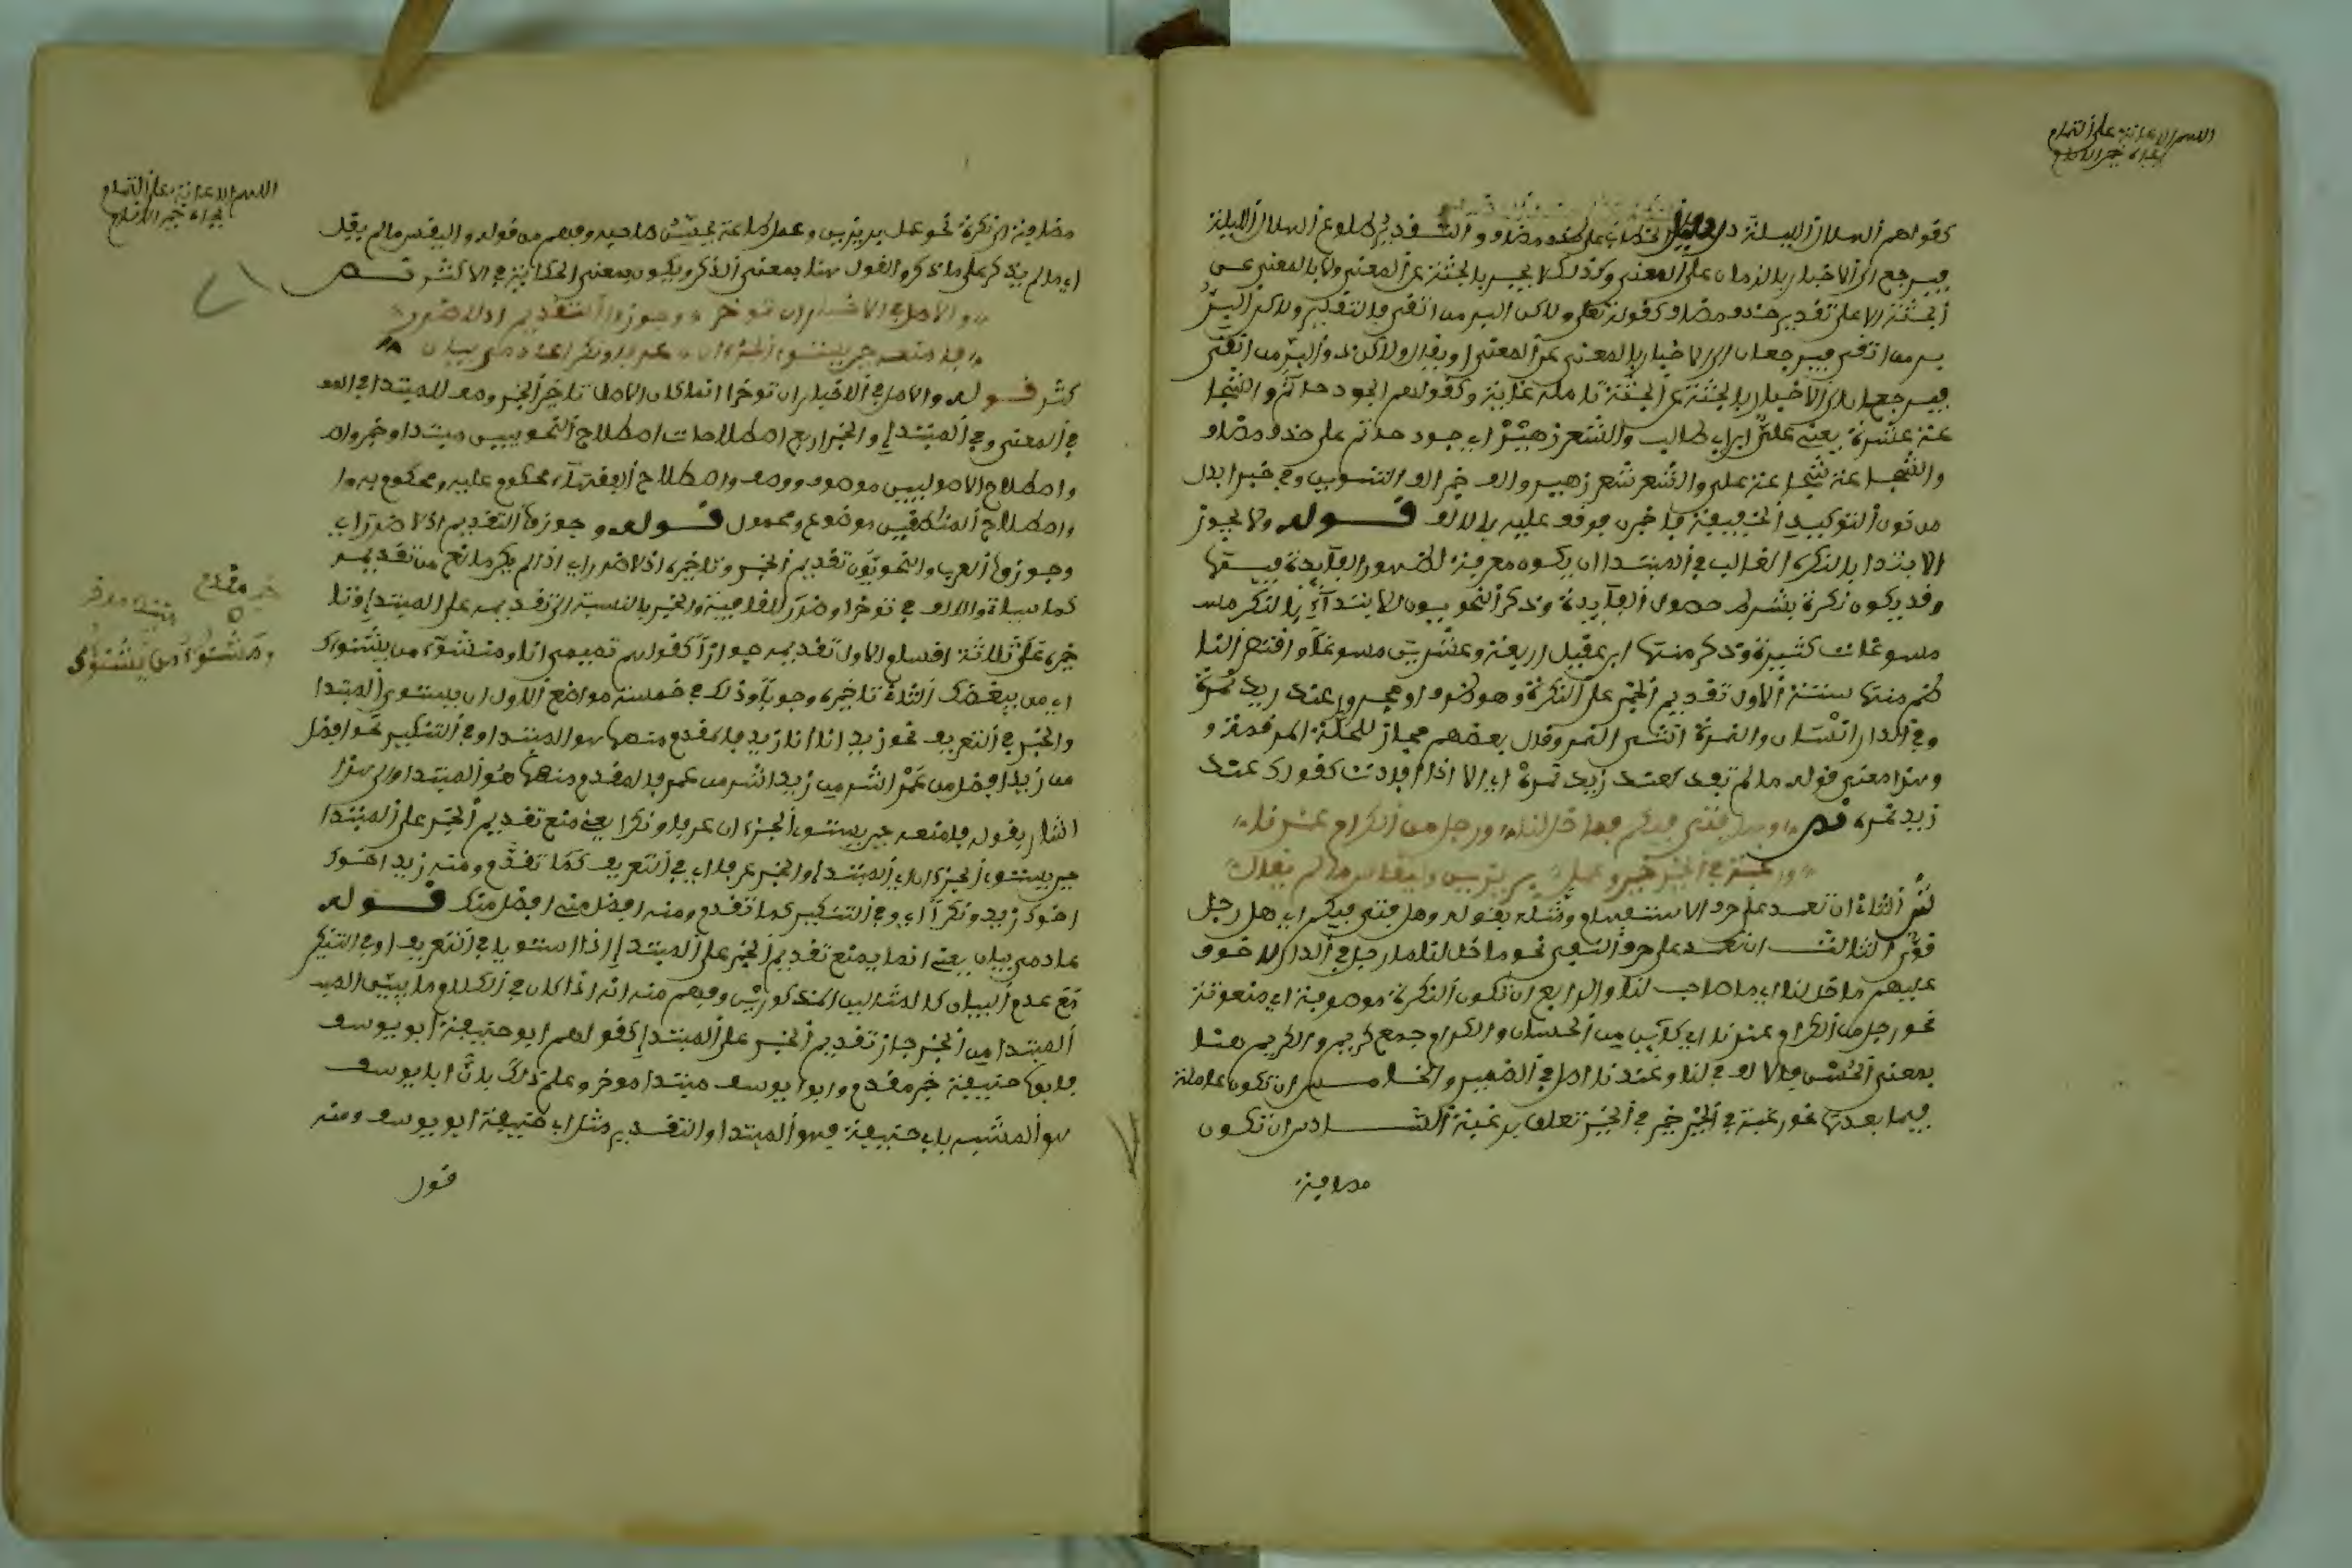 اللهم الاعانة على التمام
بجاه خير الانام
كقولهم الهلال الليلة على حذف مضاف والتقدير طلوع الهلال الليلة
فيرجع الى الاخبار بالزمان على المعنى وكذلك لا يخبر بالجثة عن المعنى ولا بالمعنى عن
الجثة الا على تقدير حذف مضاف كقوله تعلى ولاكن البر من اتقى فالتقدير ولاكن البر
بر من اتقى فيرجعان الى الاخبار بالمعنى عن المعنى او يقال ولاكن ذو البر من اتقى
فيرجع الى الاخبار بالجثة عن الجثة تامله غاية وكقولهم الجود حاتم والشجا
عة عنترة يعنى على ابن ابي طالب والشعر زهير اي جود حاتم على حذف مضاف
والشجاعة شجاعة على والشعر شعر زهير والف خبرا الف التنوين وفي خبرا بدل
من نون التوكيد الخفيفة فاخبرن فوقف عليه بالالف قوله ولا يجوز
الابتدا بالنكره الغالب في المبتدا ان يكون معرفة لظهور الفايدة فيها
وقد يكون نكرة بشرط حصول الفايدة وذكر النحويون للابتداء بالنكر مس
مسوغات كثيرة وذكر منها ابن عقيل اربعة وعشرين مسوغا واقتصر النا
ظم منها ستة الاول تقديم الخبر على النكرة وهو ظرف او مجرور عند زيد نمرة
وفي الدار انسان والنمرة انثى النمر وقال بعضهم مجاز للحلة المرقمة و
وهذا معنى قوله ما لم تفد كعند زيد نمرة اي الا اذا افادت كقولك عند
زيد نمره نص وهل فتى فيكم فما خل لنا ورجل من الكرام عندنا
ورغبة في الخير خير وعمل بر يزين وليقس ما لم يقل
نى الثانى ان تعتمد على حرف الاستفهام ومثله بقوله وهل فتى فيكم اي هل رجل
قوى الثالث ان تعتمد على حرف النفي نحو ما خل لنا ما رجل في الدار لا خوف
عليهم ما خل لنا اي ما صاحب لنا والرابع ان تكون النكرة موصوفة اي منعوتة
نحو رجل من الكرام عندنا اي كاين من الحسان والكرام جمع كريم والكريم هنا
بمعنى الحسن فالالف في لنا وعندنا اصل في الضمير والخامس ان تكون عاملة
فيما بعدها نحو رغبة في الخير خير في الخير تعلق برغبة السادس ان تكون
مضافة
اللهم الاعانة على التمام
بجاه خير الانام
مضافة الى نكرة نحو عمل بر يزين وعمل طاعة يحسن صاحبه وفهم من قوله وليقس ما لم يقل
اي ما لم يذكر على ما ذكر والقول هنا بمعنى الذكر ويكون بمعنى الحكاية في الاكثر نص
والاصل في الاخبار ان توخرا وجوزوا التقديم اذ لا ضررا
فامنعه حين يستوى الجزءان عرفا ونكرا عادمى بيان
قوله والاصل في الاخبار ان توخرا انما كان الاصل تاخير الخبر وصف للمبتدا في المعـ
في المعنى وفي المبتدا والخبر اربع اصطلاحات اصطلاح النحويين مبتدا وخبر واص
واصطلاح الاصوليين موصوف ووصف واصطلاح الفقهاء محكوم عليه ومحكوم به وا
واصطلاح المنطقيين موضوع ومحمول قوله وجوزوا التقديم اذ لا ضررا اي
وجوزوا العرب والنحويون تقديم الخبر وتاخيره اذ لا ضررا اي اذ لم يكن مانع من تقديمه
كما سياتي والالف في توخرا وضررا للقافية والخبر بالنسبة الى تقديمه على المبتدا وتا
خيره على ثلاثة اقسام الاول تقديمه جوازا كقولهم تميمى انا ومشنوء من يشنوك
اي من يبغضك الثانى تاخيره وجوبا وذلك في خمسة مواضع الاول ان يستوى المبتدا
والخبر في التعريف نحو زيد انا انا زيد فالمقدم منهما هو المبتدا وفي التنكير نحو افضل
من زيد افضل من عمر اشر من زيد اشر من عمر فالمقدم منهما هو المبتدا والى هذا
اشار بقوله فامنعه حين يستوى الجزءان عرفا ونكرا يعنى منع تقديم الخبر على المبتدا
حين يستوى الجزءان اي المبتدا والخبر عرفا اي في التعريف كما تقدم ومنه زيد اخوك
اخوك زيد ونكرا اي وفي التنكير كما تقدم ومنه افضل منى افضل منك قوله
عادمى بيان يعنى انما يمنع تقديم الخبر على المبتدا اذا استويا في التعريف او في التنكير
مع عدم البيان كالمثالين المذكورين وفهم منه انه اذا كان في الكلام ما يبين المبـ
المبتدا من الخبر جاز تقديم الخبر على المبتدا كقولهم ابو حنيفة ابو يوسف
فابو حنيفة خبر مقدم وابو يوسف مبتدا موخر وعلم ذلك بان ابا يوسف
هو المشبه بابي حنيفة فهو المبتدا والتقدير مثل ابي حنيفة ابو يوسف ومنه
قول
خبر مقدم
مبتدا موخر
ومشنوء من يشنوك